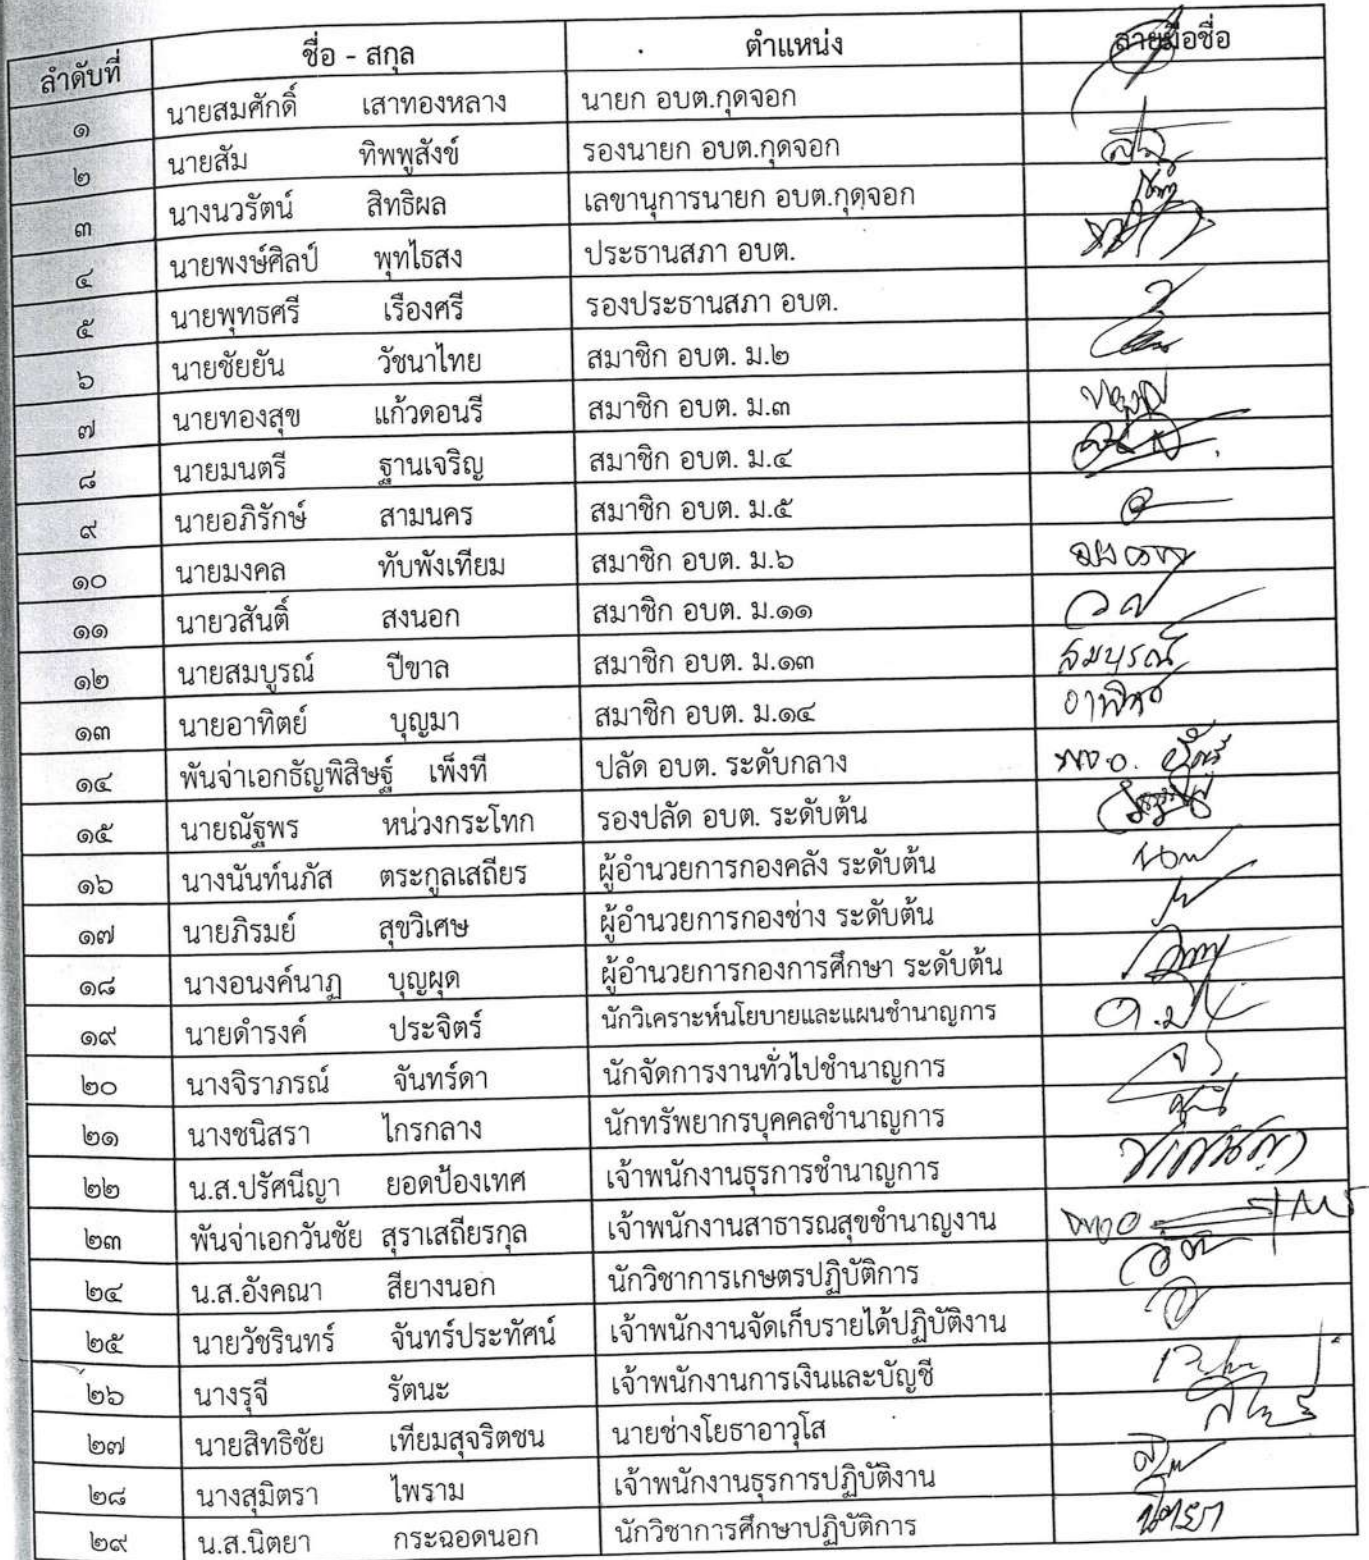 ลำดับที่ ชื่อ - สกุล ตำแหน่ง ลายมือชื่อ
๑ นายสมศักดิ์ เสาทองหลาง นายก อบต.กุดจอก
๒ นายสัม ทิพพูสังข์ รองนายก อบต.กุดจอก
๓ นางนวรัตน์ สิทธิผล เลขานุการนายก อบต.กุดจอก
๔ นายพงษ์ศิลป์ พุทไธสง ประธานสภา อบต.
๕ นายพุทธศรี เรืองศรี รองประธานสภา อบต.
๖ นายชัยยัน วัชนาไทย สมาชิก อบต. ม.๒
๗ นายทองสุข แก้วดอนรี สมาชิก อบต. ม.๓
๘ นายมนตรี ฐานเจริญ สมาชิก อบต. ม.๔
๙ นายอภิรักษ์ สามนคร สมาชิก อบต. ม.๕
๑๐ นายมงคล ทับพังเทียม สมาชิก อบต. ม.๖
๑๑ นายวสันติ์ สงนอก สมาชิก อบต. ม.๑๑
๑๒ นายสมบูรณ์ ปีขาล สมาชิก อบต. ม.๑๓ สมบูรณ์
๑๓ นายอาทิตย์ บุญมา สมาชิก อบต. ม.๑๔
๑๔ พันจ่าเอกธัญพิสิษฐ์ เพ็งที ปลัด อบต. ระดับกลาง
๑๕ นายณัฐพร หน่วงกระโทก รองปลัด อบต. ระดับต้น
๑๖ นางนันท์นภัส ตระกูลเสถียร ผู้อำนวยการกองคลัง ระดับต้น
๑๗ นายภิรมย์ สุขวิเศษ ผู้อำนวยการกองช่าง ระดับต้น
๑๘ นางอนงค์นาฏ บุญผุด ผู้อำนวยการกองการศึกษา ระดับต้น
๑๙ นายดำรงค์ ประจิตร์ นักวิเคราะห์นโยบายและแผนชำนาญการ
๒๐ นางจิราภรณ์ จันทร์ดา นักจัดการงานทั่วไปชำนาญการ
๒๑ นางชนิสรา ไกรกลาง นักทรัพยากรบุคคลชำนาญการ
๒๒ น.ส.ปรัศนีญา ยอดป้องเทศ เจ้าพนักงานธุรการชำนาญการ
๒๓ พันจ่าเอกวันชัย สุราเสถียรกุล เจ้าพนักงานสาธารณสุขชำนาญงาน
๒๔ น.ส.อังคณา สียางนอก นักวิชาการเกษตรปฏิบัติการ
๒๕ นายวัชรินทร์ จันทร์ประทัศน์ เจ้าพนักงานจัดเก็บรายได้ปฏิบัติงาน
๒๖ นางรุจี รัตนะ เจ้าพนักงานการเงินและบัญชี
๒๗ นายสิทธิชัย เทียมสุจริตชน นายช่างโยธาอาวุโส
๒๘ นางสุมิตรา ไพราม เจ้าพนักงานธุรการปฏิบัติงาน
๒๙ น.ส.นิตยา กระฉอดนอก นักวิชาการศึกษาปฏิบัติการ นิตยา